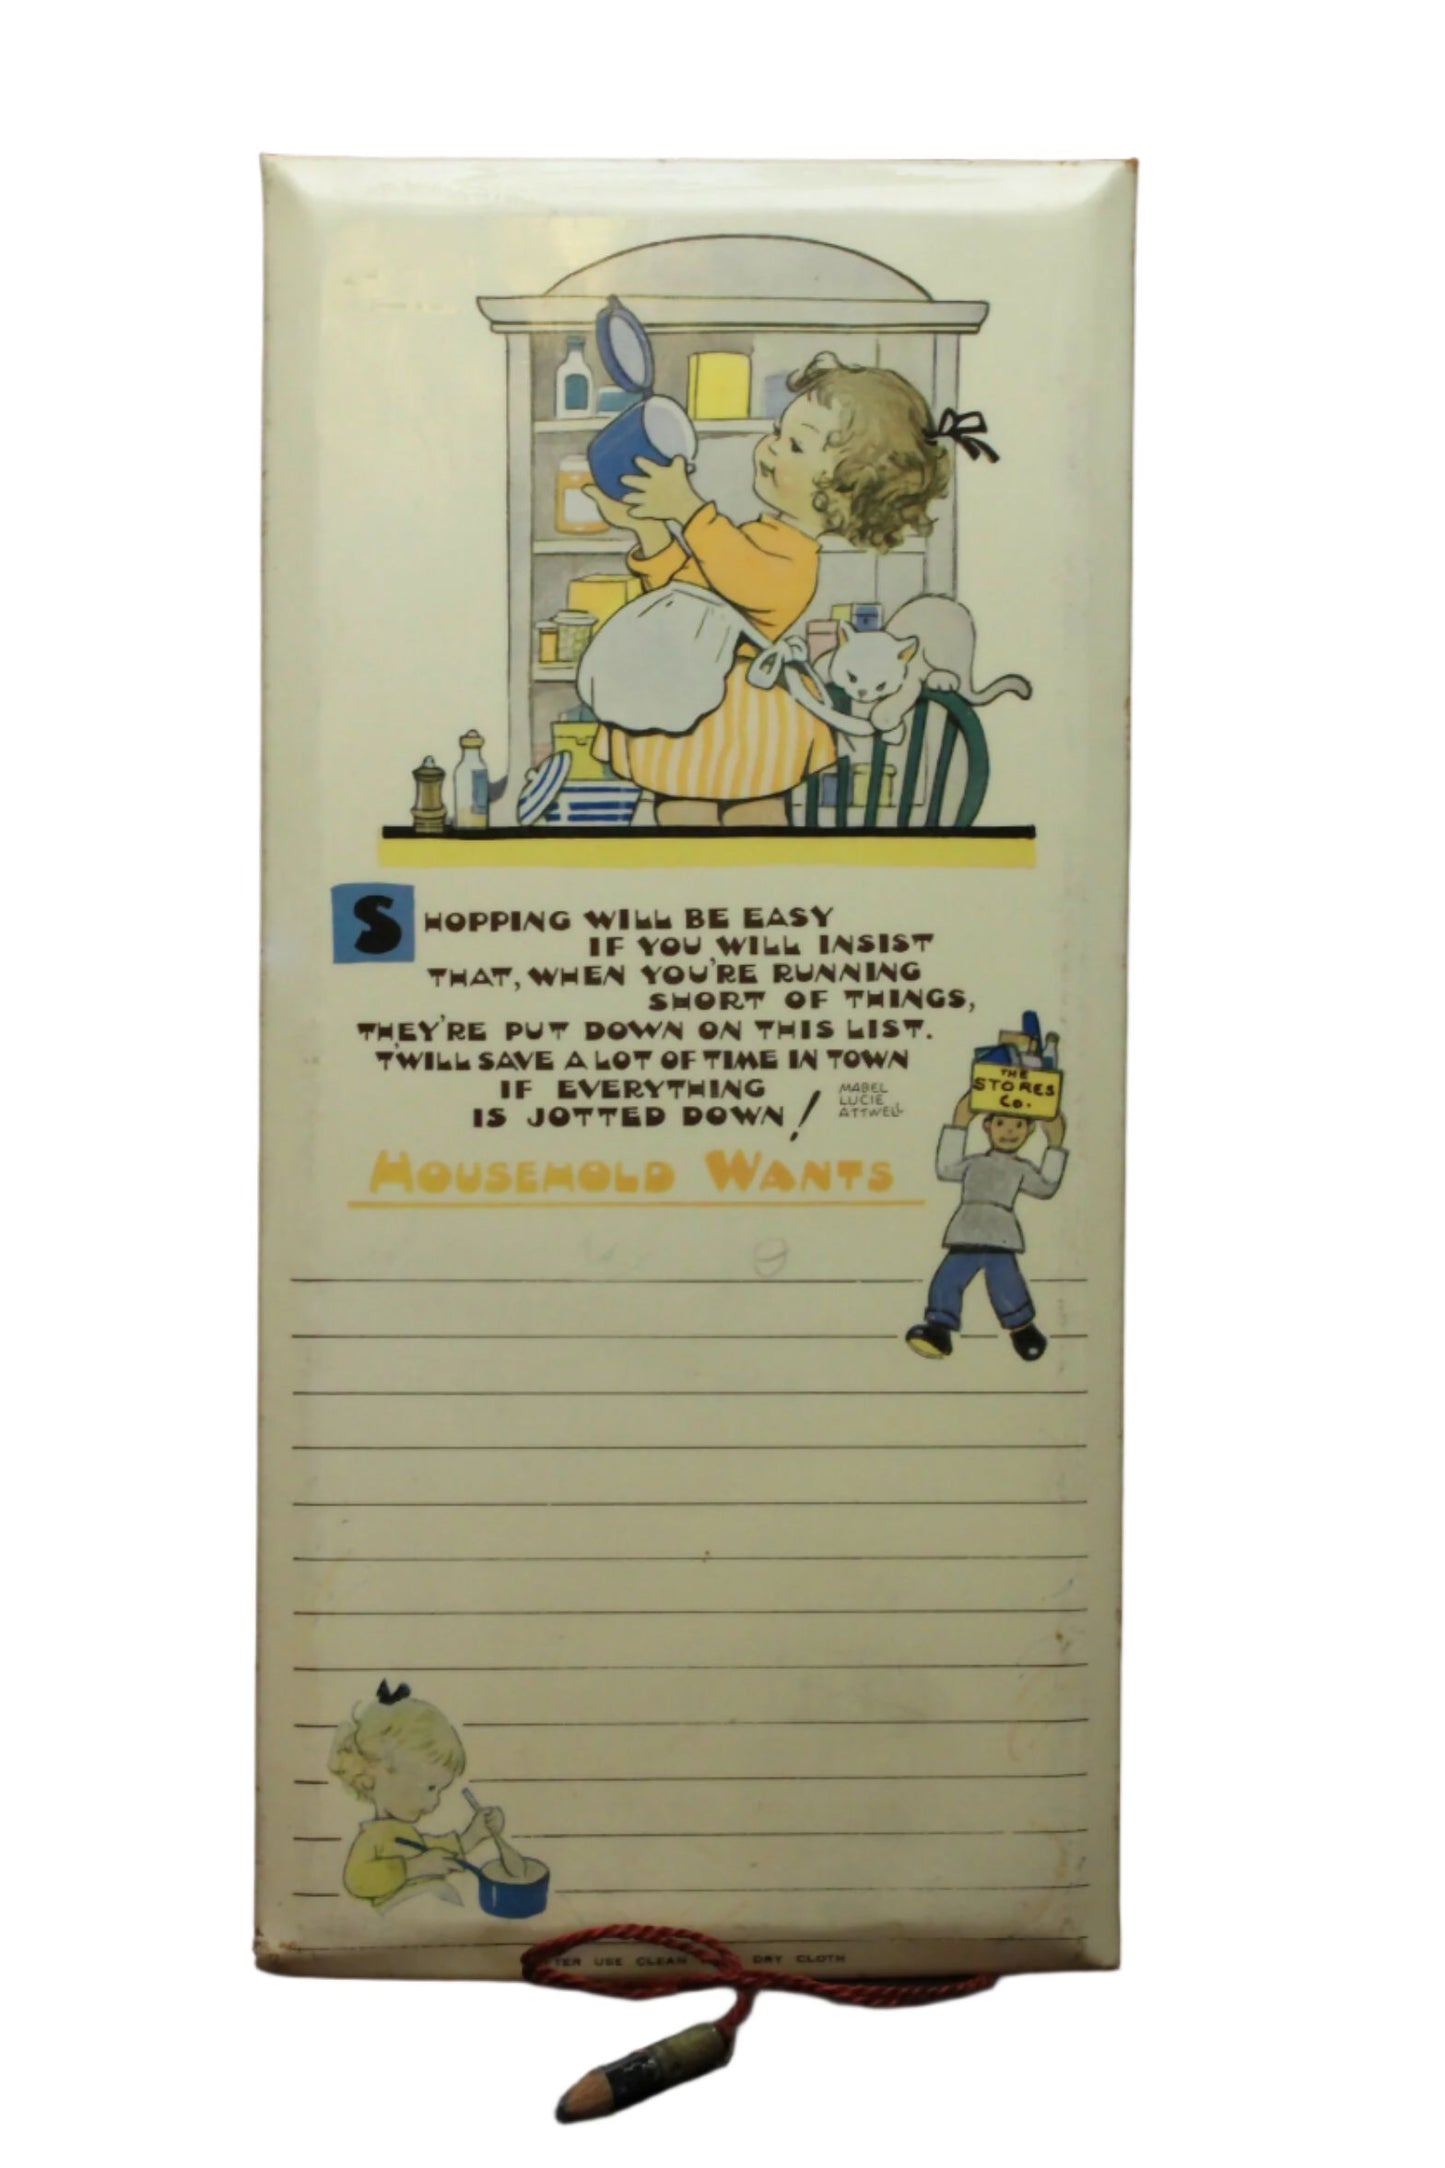 SHOPPING WILL BE EASY
IF YOU WILL INSIST
THAT, WHEN YOU'RE RUNNING
SHORT OF THINGS,
THEY'RE PUT DOWN ON THIS LIST.
T'WILL SAVE A LOT OF TIME IN TOWN
IF EVERYTHING
IS JOTTED DOWN!
MABEL
LUCIE
ATTWELL
THE
STORES
Co.
HOUSEHOLD WANTS
USE CLEAN DRY CLOTH